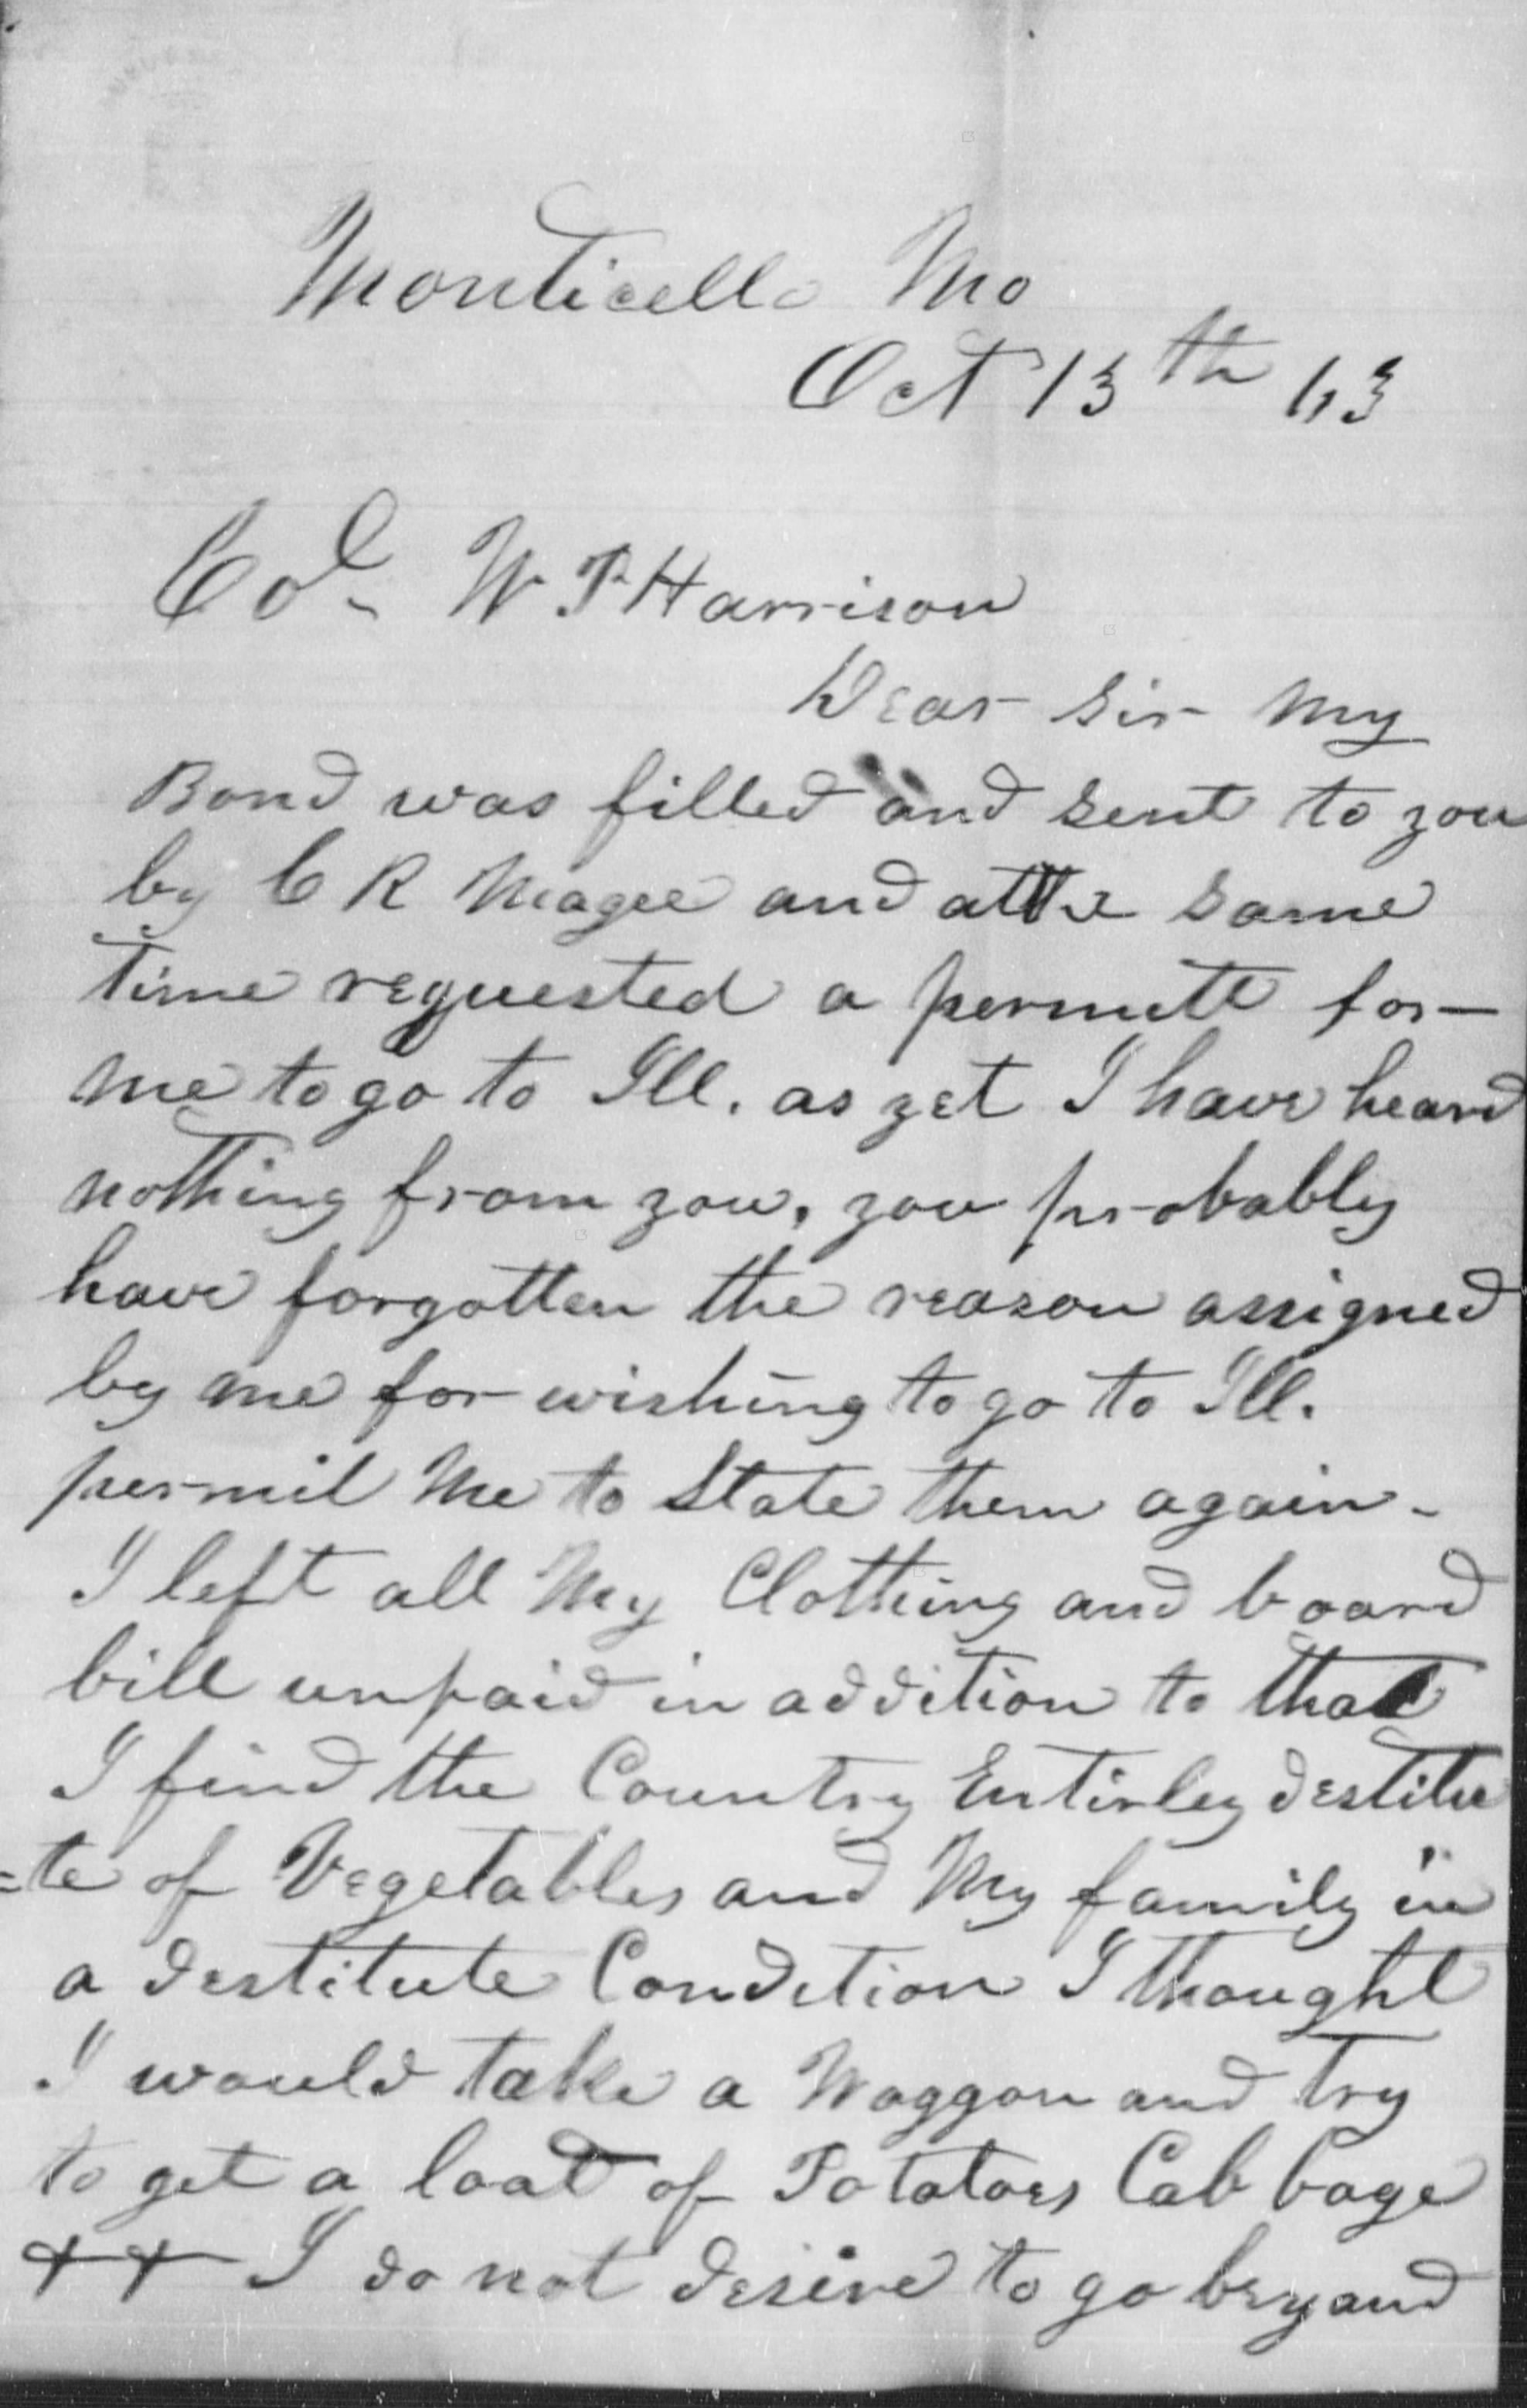 Monticello Mo
Oct 13th 63
Col. W T Harrison
Dear Sir My
Bond was filled and sent to you
by C R Magee and at the same
time requested a permitt for
me to go to Ill. as yet I have heard
nothing from you, you probably
have forgotten the reason assigned
by me for wishing to go to Ill.
permit me to State them again.
I left all My Clothing and board
bill unpaid in addition to that
I find the Country Entirley destitu
=te of Vegetables and My family in
a destitute Condition I thought
I would take a Waggon and try
to get a load of Potatoes Cabbage
++ I do not desire to go beyand